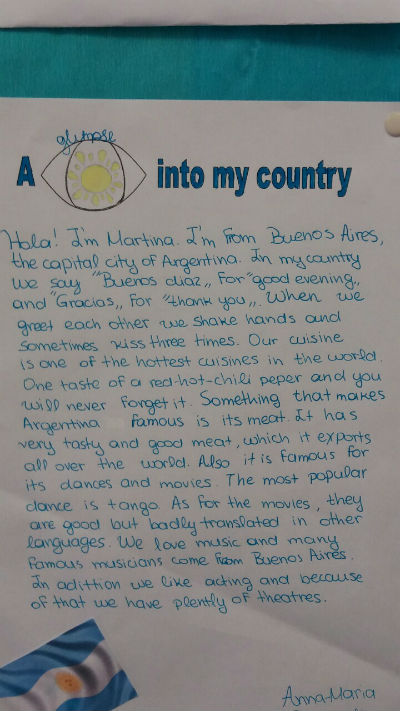 glimpse
A into my country
Hola! I'm Martina. I'm from Buenos Aires,
the capital city of Argentina. In my country
we say "Buenos diaz„ For "good evening„
and "Gracias„ For "thank you„. When we
greet each other we shake hands and
sometimes kiss three times. Our cuisine
is one of the hottest cuisines in the world.
One taste of a red-hot-chili peper and you
will never forget it. Something that makes
Argentina famous is its meat. It has
very tasty and good meat, which it exports
all over the world. Also it is famous for
its dances and movies. The most popular
dance is tango. As for the movies, they
are good but badly translated in other
languages. We love music and many
famous musicians come from Buenos Aires.
In adittion we like acting and because
of that we have plently of theatres.
Anna-Maria